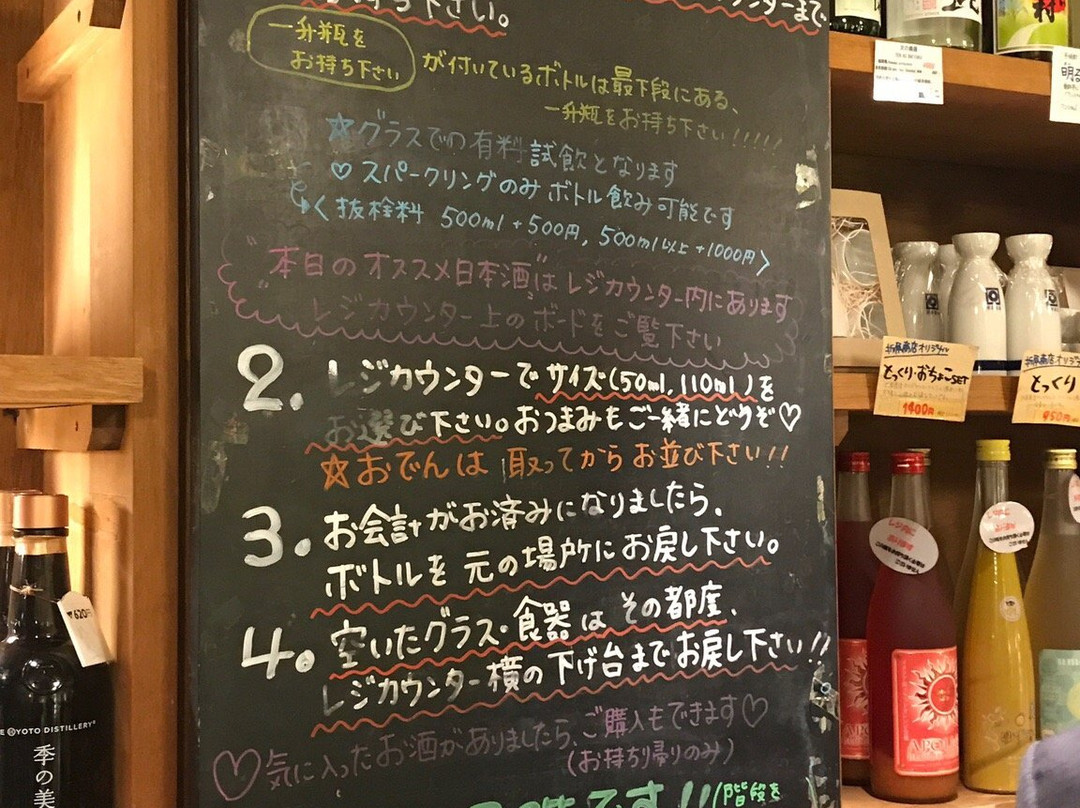 お持ち下さい。
カウンターまで、
一升瓶を
お持ち下さい
が付いているボトルは最下段にある、
一升瓶をお持ち下さい!!!!!
☆グラスでの有料試飲となります
♡スパークリングのみボトル飲み可能です
〈抜栓料 500ml+500円, 500ml以上+1000円〉
"本日のオススメ日本酒"はレジカウンター内にあります
レジカウンター上のボードをご覧下さい
2. レジカウンターでサイズ(50ml, 110ml)を
お選び下さい。おつまみもご一緒にどうぞ♡
☆おでんは 取ってからお並び下さい!!
3. お会計がお済みになりましたら、
ボトルを元の場所にお戻し下さい。
4. 空いたグラス・食器はその都度、
レジカウンター横の下げ台までお戻し下さい!!
♡気に入ったお酒がありましたら、ご購入もできます♡
(お持ち帰りのみ)
です!!(階段を
とっくり・おちょこSET
1400円
とっくり
950円
¥620
KYOTO DISTILLERY
季の美